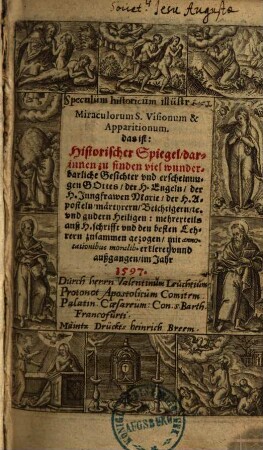 Societ. Jesu Augustæ
Speculum historicum illustr.
Miraculorum S. Visionum &
Apparitionum.
das ist:
Historischer Spiegel/dar-
innen zu finden viel wunder-
barliche Gesichter vnd erscheinun-
gen GOttes/der H. Engeln/der
H. Jungfrawen Marie/der H. A-
posteln/märtyrern/Beichtigern/ꝛc.
vnd andern Heiligen: mehrerteils
auß H. schrifft vnd den besten Leh-
rern zusammen gezogen/mit
moralib. erkleret vnnd
außgangen/im Jahr
1597.
Durch herrn Valentinum Leuchtium
Protonot Apostolicum Comitem
Palatin. Cæsareum: Con. s. Barth.
Francofurti.
Mäintz Druckts heinrich Breem.